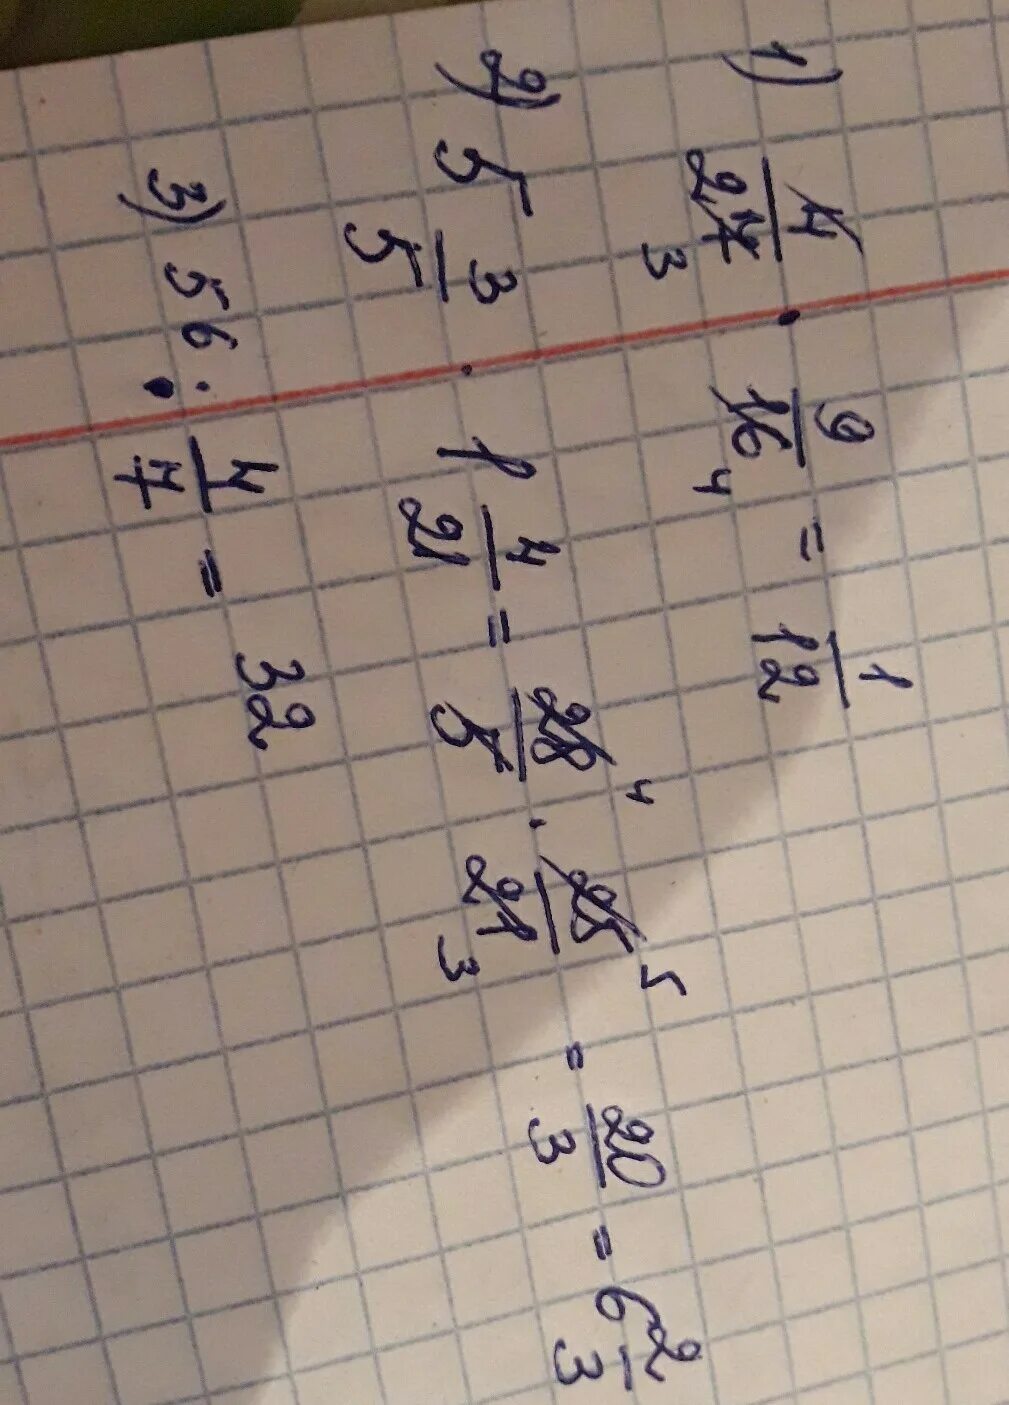 1) 4/27 · 9/16 = 1/12
3 4
2) 5 3/5 · 1 4/21 = 28/5 · 25/21 = 20/3 = 6 2/3
4 5 3
3) 56 · 4/7 = 32